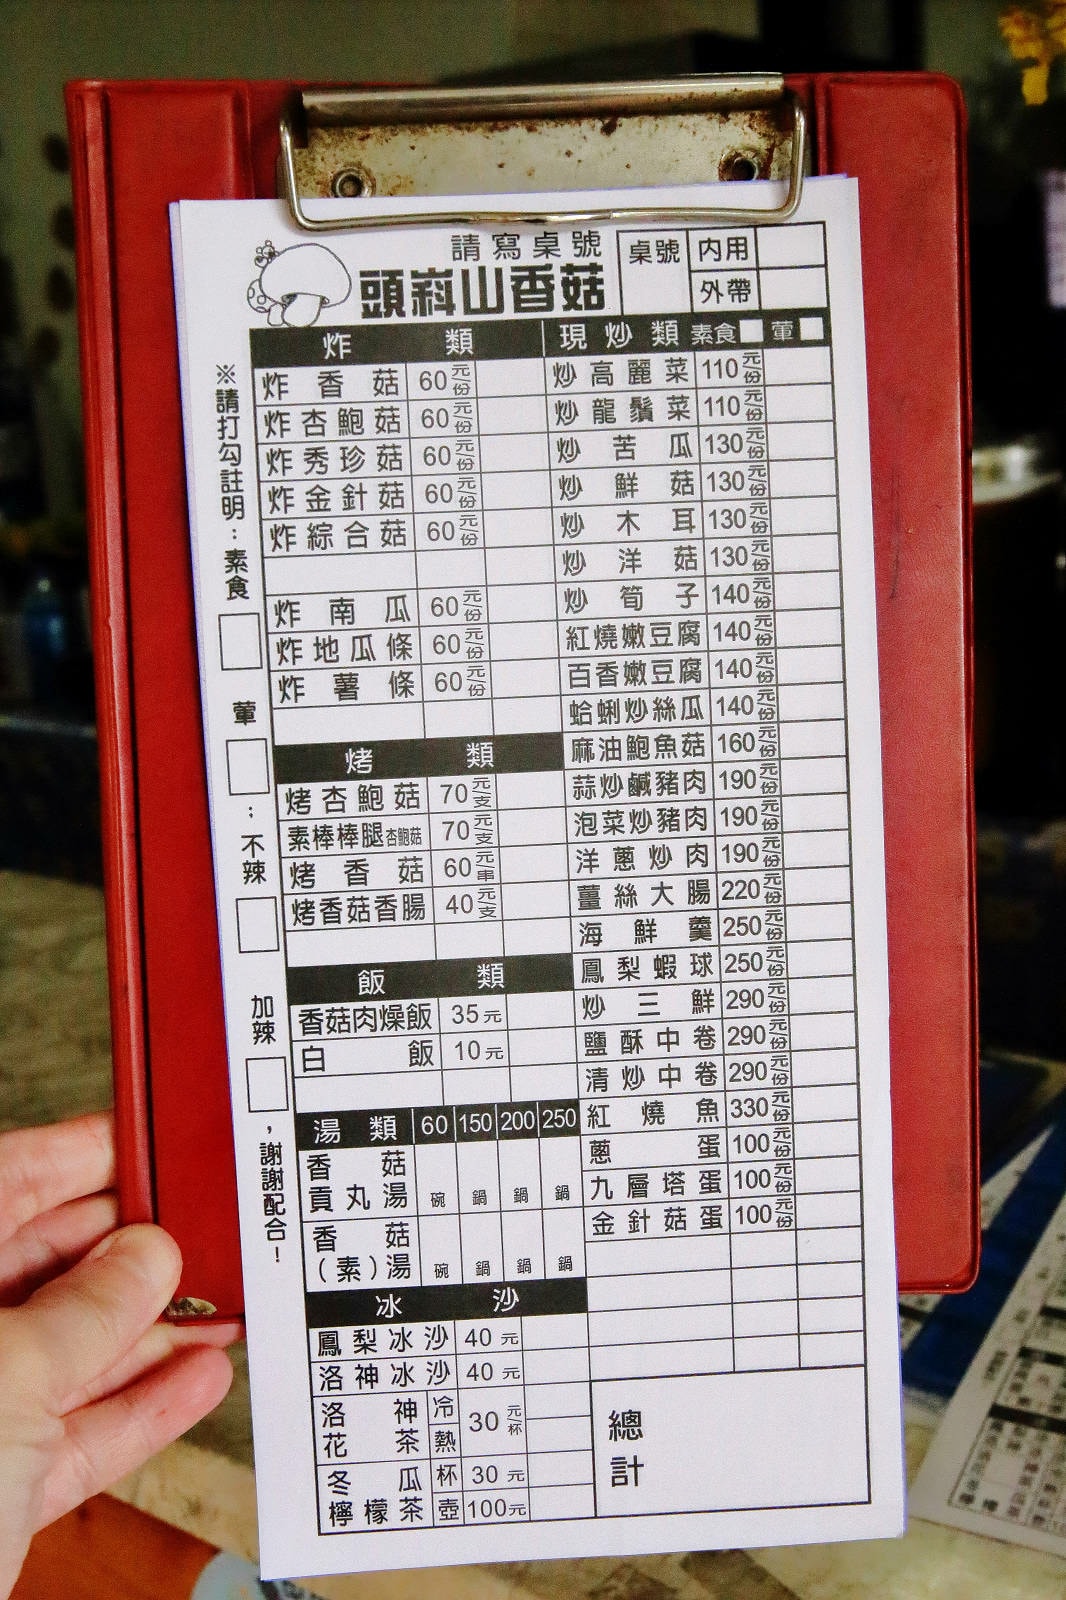 請寫桌號
頭嵙山香菇
桌號 內用
外帶
※請打勾註明：素食 葷 ；不辣 加辣 ，謝謝配合！
炸類
炸香菇 60元/份
炸杏鮑菇 60元/份
炸秀珍菇 60元/份
炸金針菇 60元/份
炸綜合菇 60元/份
炸南瓜 60元/份
炸地瓜條 60元/份
炸薯條 60元/份
烤類
烤杏鮑菇 70元/支
素棒棒腿杏鮑菇 70元/支
烤香菇 60元/串
烤香菇香腸 40元/支
飯類
香菇肉燥飯 35元
白飯 10元
湯類 60 150 200 250
香菇
貢丸湯 碗 鍋 鍋 鍋
香菇
（素）湯 碗 鍋 鍋 鍋
冰沙
鳳梨冰沙 40元
洛神冰沙 40元
洛神 冷 30元/杯
花茶 熱
冬瓜 杯 30元
檸檬茶 壺 100元
現炒類 素食 葷
炒高麗菜 110元/份
炒龍鬚菜 110元/份
炒苦瓜 130元/份
炒鮮菇 130元/份
炒木耳 130元/份
炒洋菇 130元/份
炒筍子 140元/份
紅燒嫩豆腐 140元/份
百香嫩豆腐 140元/份
蛤蜊炒絲瓜 140元/份
麻油鮑魚菇 160元/份
蒜炒鹹豬肉 190元/份
泡菜炒豬肉 190元/份
洋蔥炒肉 190元/份
薑絲大腸 220元/份
海鮮羹 250元/份
鳳梨蝦球 250元/份
炒三鮮 290元/份
鹽酥中卷 290元/份
清炒中卷 290元/份
紅燒魚 330元/份
蔥蛋 100元/份
九層塔蛋 100元/份
金針菇蛋 100元/份
總
計